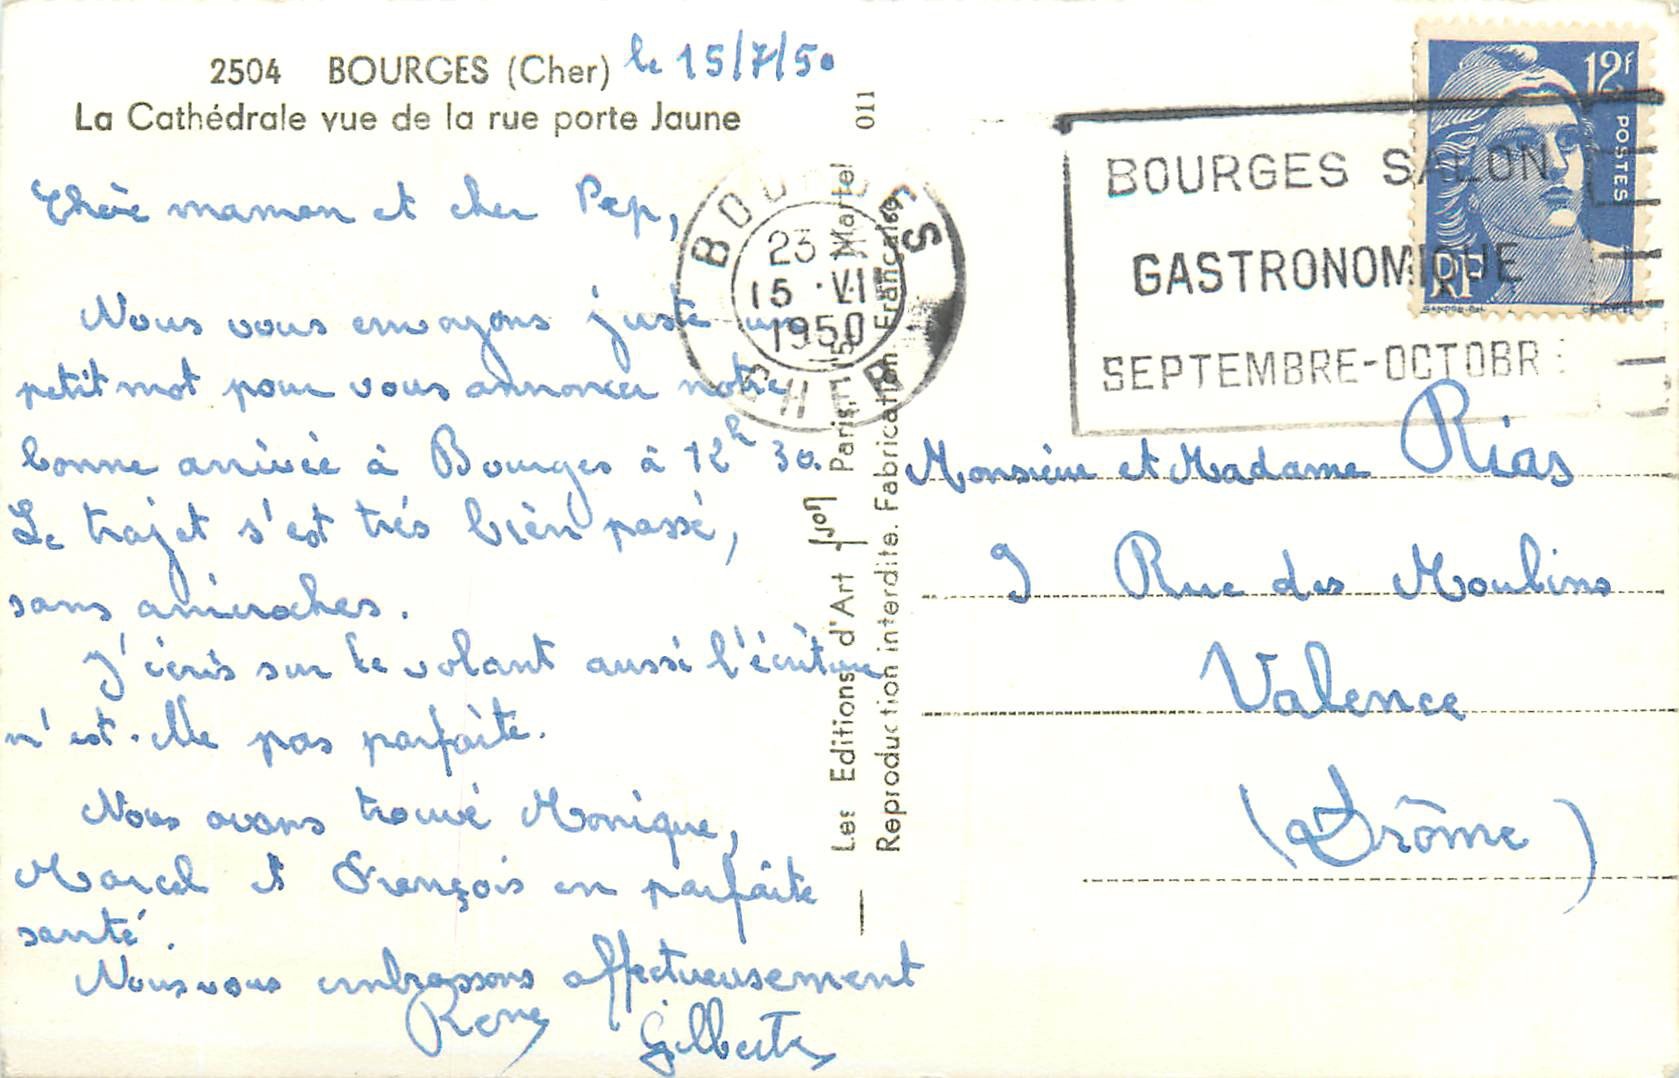 2504 BOURGES (Cher) le 15/7/50
La Cathédrale vue de la rue porte Jaune
Chère maman et cher Pep,
Nous vous envoyons juste un
petit mot pour vous annoncer notre
bonne arrivée à Bourges à 12h 30.
Le trajet s'est trés bien passé,
sans anicroches.
J'écris sur le volant aussi l'écriture
n'est-elle pas parfaite.
Nous avons trouvé Monique,
Marcel et François en parfaite
santé.
Nous vous embrassons affectueusement
Rene Gilberte
Les Editions d'Art Yvon Paris, 15 Martel
Reproduction interdite. Fabrication Française
011
BOURGES
23
15 VII
1950
CHER
BOURGES SALON
GASTRONOMIQUE
SEPTEMBRE-OCTOBRE
12F
POSTES
RF
GANDON
Monsieur et Madame Rias
9 Rue des Moulins
Valence
(Drôme)